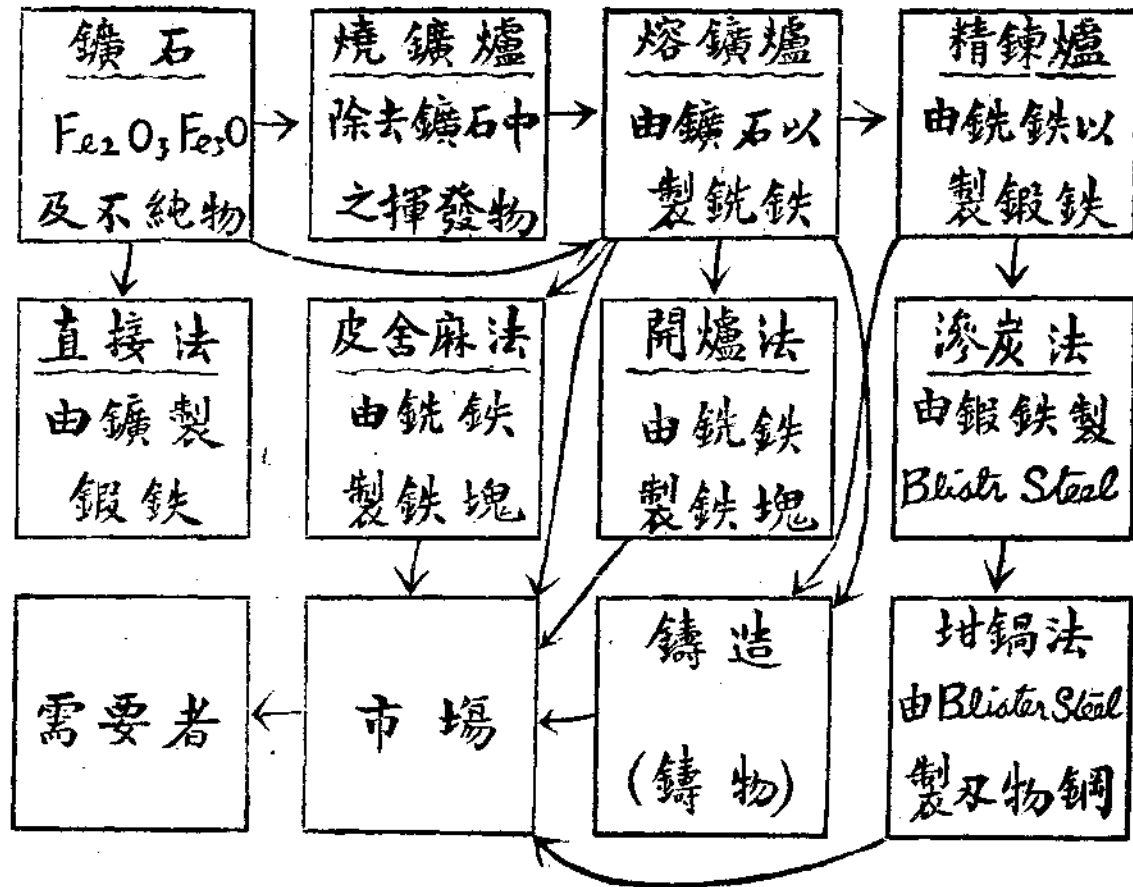 鑛石
Fe2O3Fe3O
及不純物
燒鑛爐
除去鑛石中
之揮發物
熔鑛爐
由鑛石以
製銑鉄
精鍊爐
由銑鉄以
製鍛鉄
直接法
由鑛製
鍛鉄
皮舍麻法
由銑鉄
製鉄塊
開爐法
由銑鉄
製鉄塊
滲炭法
由鍛鉄製
Blistr Steel
需要者
市塲
鑄造
(鑄物)
坩鍋法
由Blister Steel
製刃物鋼